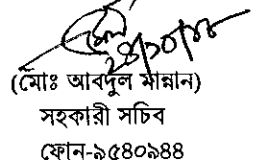 ২৪/১০/১৮
(মোঃ আবদুল মান্নান)
সহকারী সচিব
ফোন-৯৫৪০৯৪৪